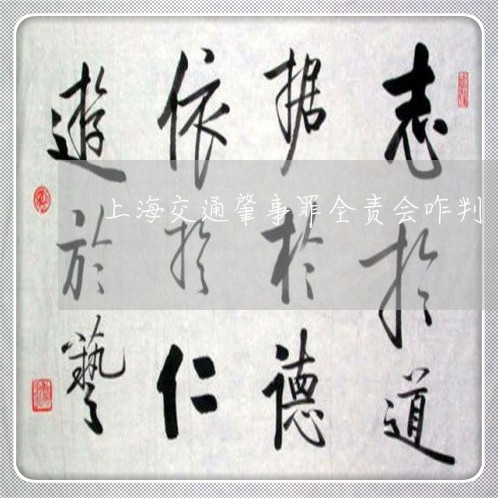 志於道
据於德
依於仁
遊於藝
上海交通肇事罪全责会咋判